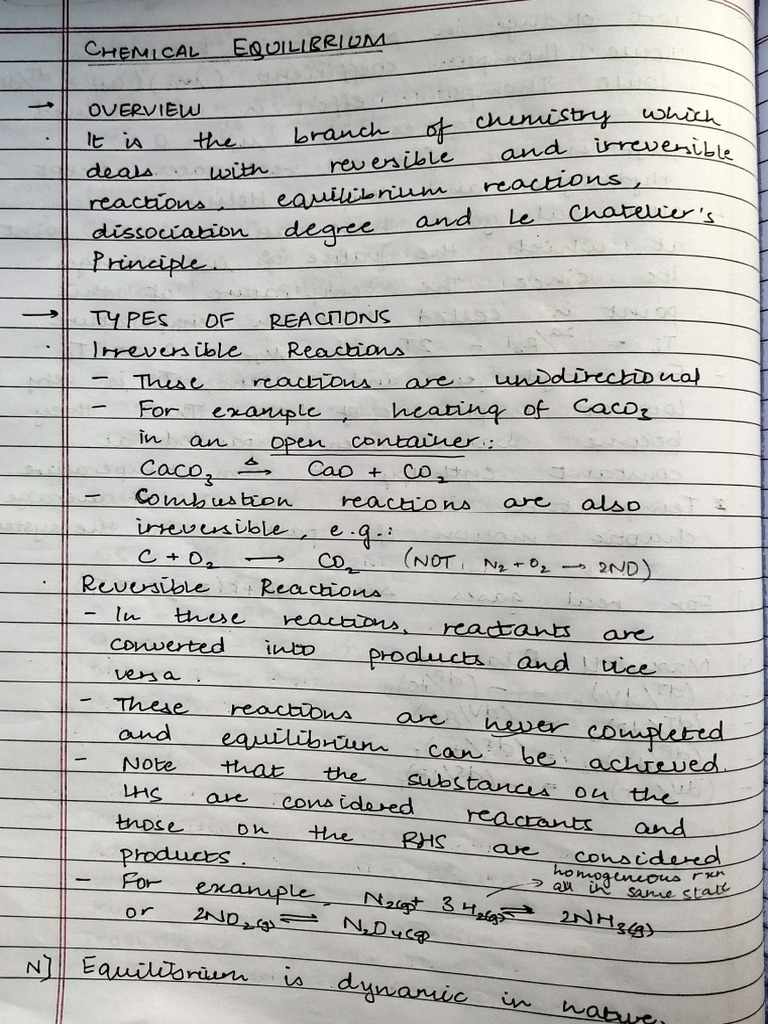 CHEMICAL EQUILIBRIUM
→ OVERVIEW
· It is the branch of chemistry which
deals with reversible and irreversible
reactions, equilibrium reactions,
dissociation degree and le Chatelier's
Principle.
→ TYPES OF REACTIONS
· Irreversible Reactions
- These reactions are unidirectional
- For example, heating of CaCO₃
in an open container:
CaCO₃ →^Δ CaO + CO₂
- Combustion reactions are also
irreversible, e.g.:
C + O₂ → CO₂ (NOT, N₂ + O₂ → 2NO)
· Reversible Reactions
- In these reactions, reactants are
converted into products and vice
versa.
- These reactions are never completed
and equilibrium can be achieved.
- Note that the substances on the
LHS are considered reactants and
those on the RHS are considered
products.
→ homogeneous rxn
all in same state
- For example, N₂(g) + 3H₂(g) ⇌ 2NH₃(g)
or 2NO₂(g) ⇌ N₂O₄(g)
N] Equilibrium is dynamic in nature.